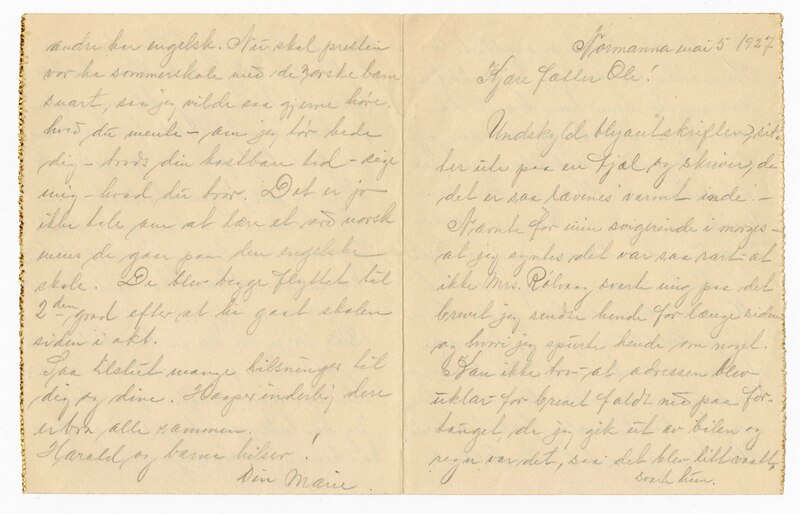 Normanna mai 5 1927
Kjære fætter Ole!
Undskyld blyantskriften, sit-
ter ute paa en fjæl og skriver, da
det er saa lævenes varmt inde. -
Nævnte for min svigerinde i morges-
at jeg syntes det var saa rart at
ikke Mrs. Rølvaag svarte mig paa det
brevet jeg sendte hende for længe siden
og hvori jeg spurte hende om noget.
Kan ikke tro- at adressen blev
uklar- for brevet faldt ned paa for-
tauget, da jeg gik ut av bilen og
regn var det, saa det blev litt vaatt,
svarte hun.
andre har engelsk. Nu skal presten
vor ha sommerskole med de norske barn
snart, saa jeg vilde saa gjerne høre,
hvad du mente - om jeg tør bede
dig - trods din kostbare tid - sige
mig - hvad du tror. Det er jo
ikke tale om at lære et ord norsk
mens de gaar paa den engelske
skole. De blev begge flyttet til
2den grad efter at ha gaat skolen
siden i okt.
Saa tilslut mange hilsninger til
dig og dine. Haaper inderlig dere
er bra alle sammen.
Harald og barna hilser!
Din Marie.